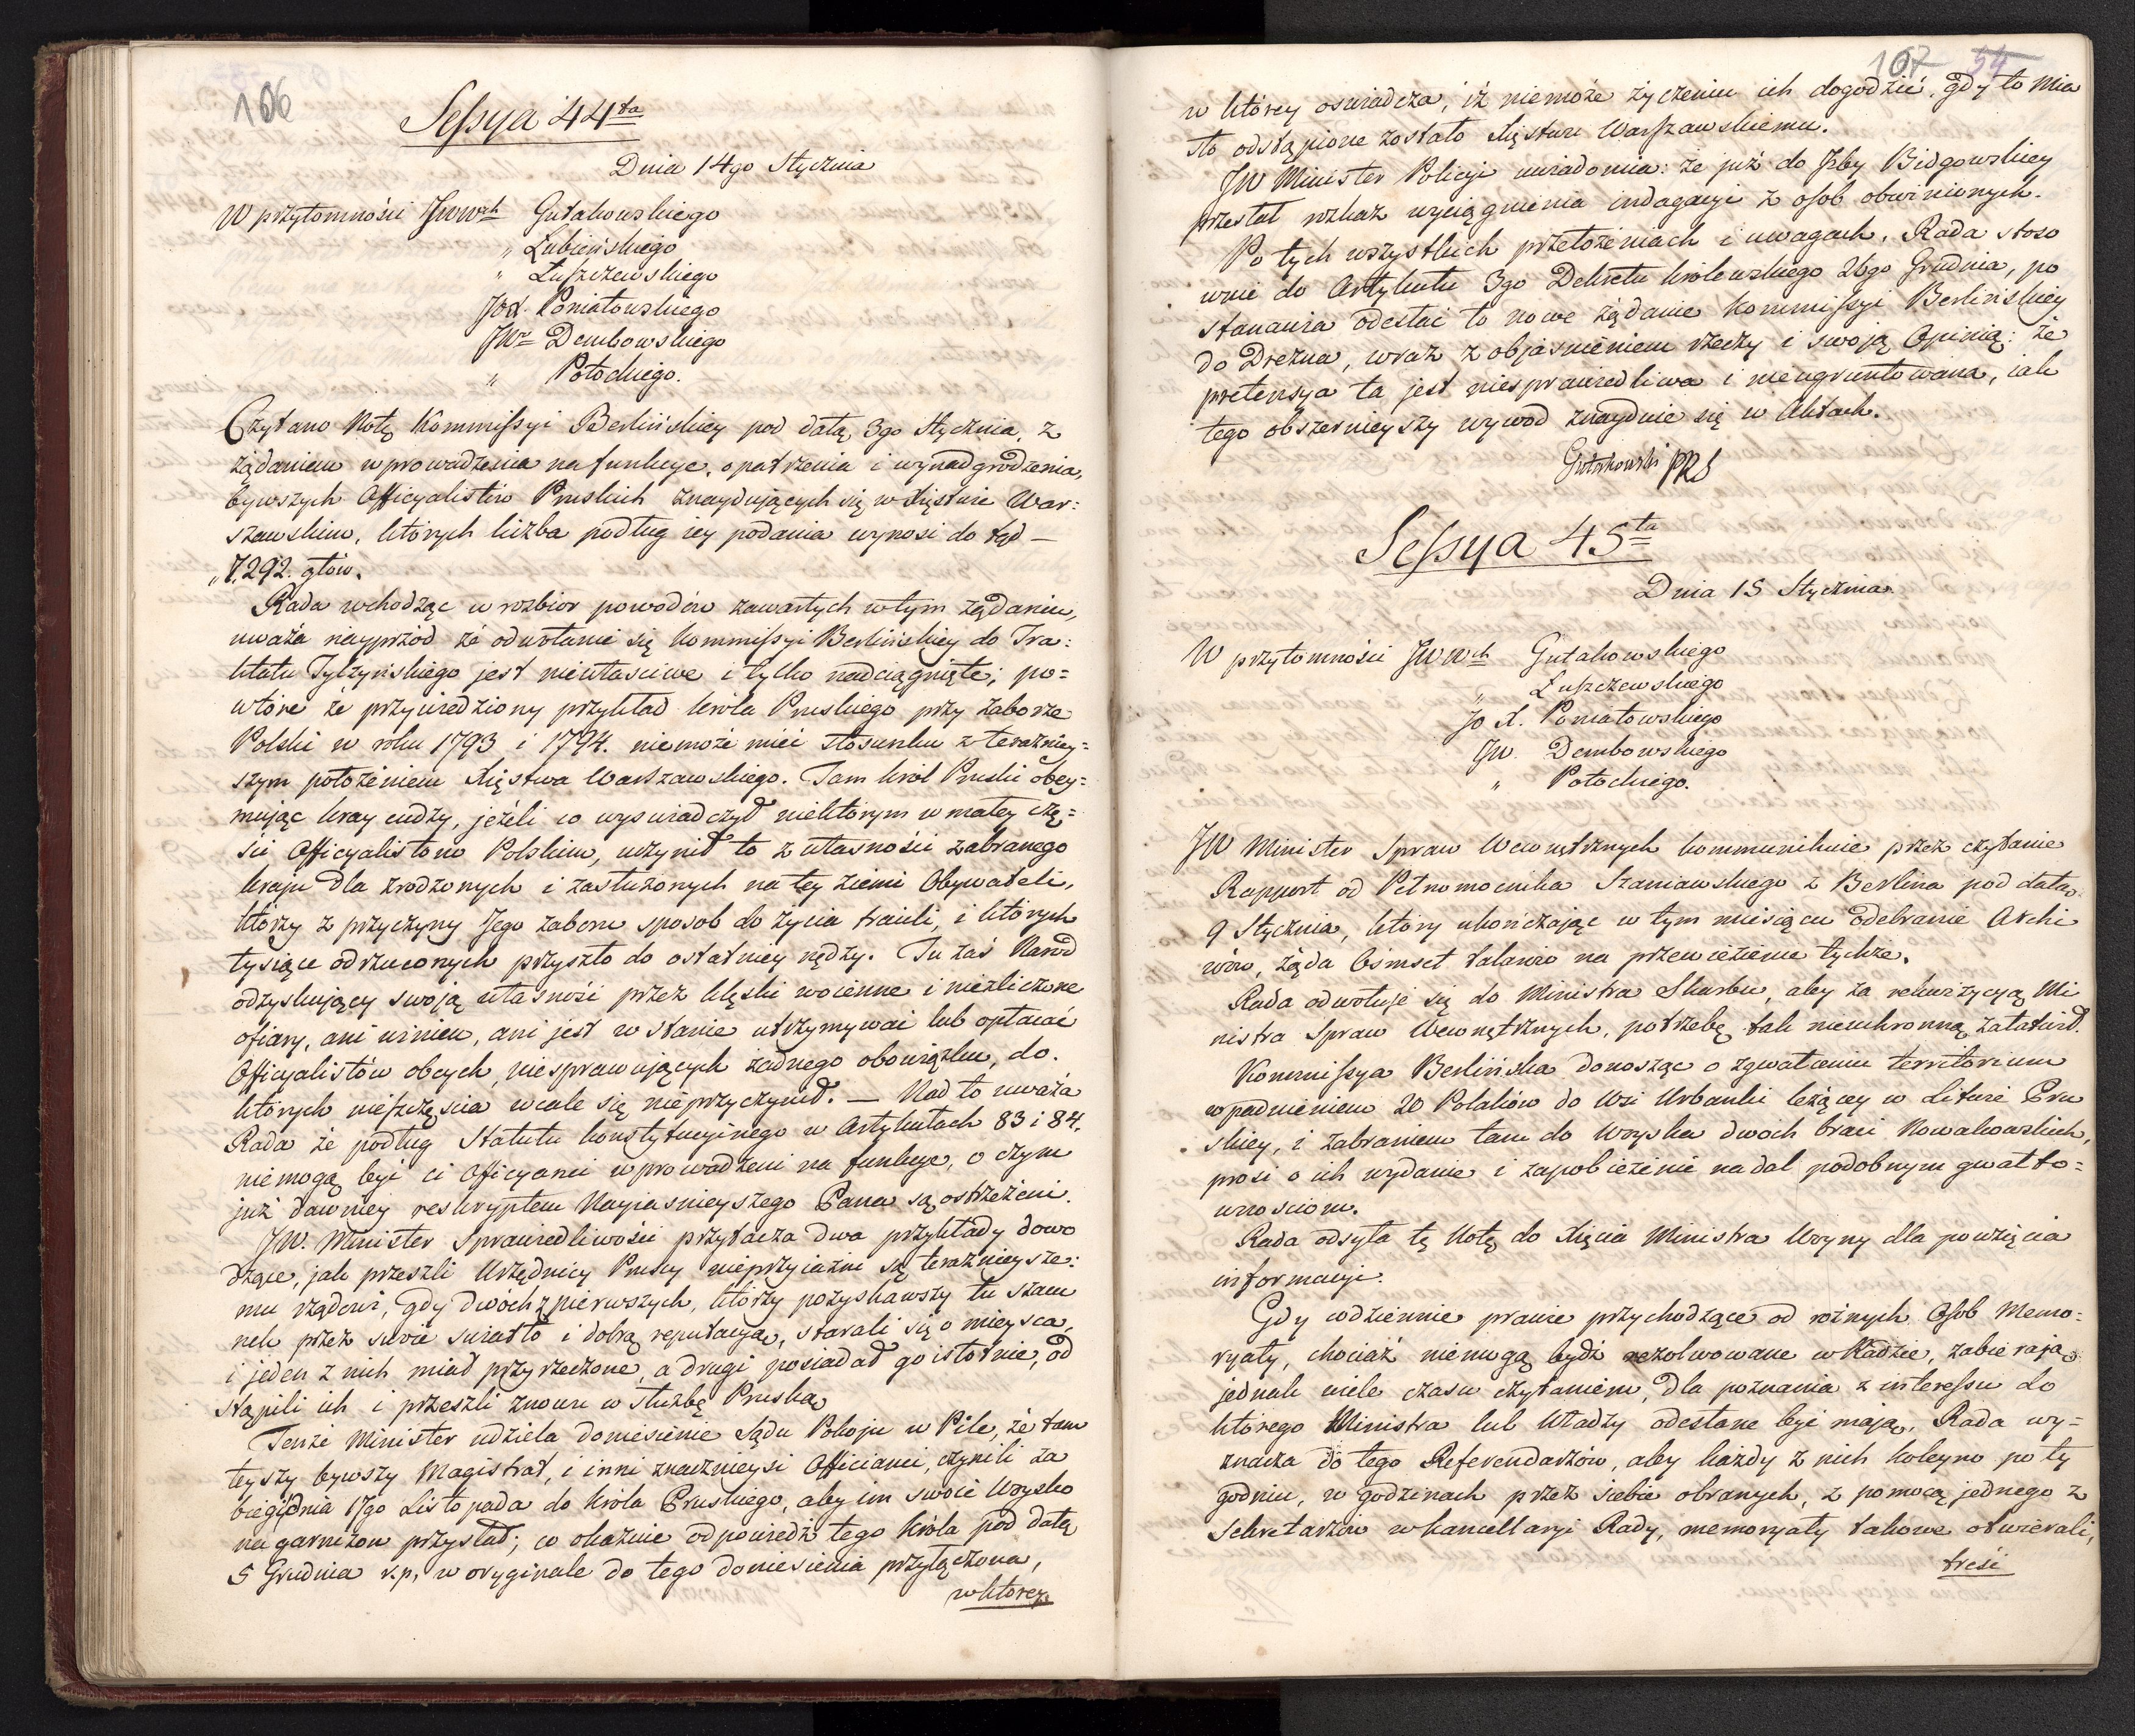 106
Sessya 44ta
Dnia 14go Stycznia
W przytomności JWWch Gutakowskiego
„ Łubieńskiego
„ Łuszczewskiego
JOX. Poniatowskiego
JWo Dembowskiego
„ Potockiego.
Czytano Notę Kommissyi Berlińskiey pod datą 3go Stycznia, z
żądaniem wprowadzenia na funkcye, opatrzenia i wynadgrodzenia,
bywszych Officyalistów Pruskich znayduiących się w Xięstwie War:
szawskim, których liczba podług iey podania wynosi do tąd —
„7,292. głów.
Rada wchodząc w rozbior powodów zawartych w tym żądaniu,
uważa nayprzód że odwołanie się Kommissyi Berlińskiey do Tra:
ktatu Tylżyńskiego jest niewłasciwe i tylko nadciągnięte; po=
wtóre że przywiedziony przykład króla Pruskiego przy zaborze
Polski w roku 1793 i 1794. niemoże mieć stosunku z teraźniey=
szym położeniem Xięstwa Warszawskiego. Tam król Pruski obey=
mując kray cudzy, jeżeli co wyswiadczył niektórym w małey czę=
ści Officyalistom Polskim, uczynił to z własności zabranego
kraju dla zrodzonych i zasłużonych na tey ziemi Obywateli,
którzy z przyczyny Jego zaboru sposob do życia tracili, i których
tysiące odrzuconych przyszło do ostatniey nędzy. Tu zaś Naród
odzyskujący swoją własność przez klęski woienne i niezliczone
ofiary, ani winien, ani jest w stanie utrzymywać lub opłacać
Officyalistów obcych, niesprawujących żadnego obowiązku, do
których nieszczęscia wcale się nieprzyczynił. — Nad to uważa
Rada że podług Statutu konstytucyinego w Artykułach 83 i 84.
niemogą być ci Officyanci wprowadzeni na funkcye, o czym
już dawniey reskryptem Nayiasnieyszego Pana są ostrzeżeni.
JW. Minister Sprawiedliwości przytacza dwa przykłady dowo
dzące, jak przeszli Urzędnicy Pruscy nieprzyiaźni są teraźnieysze:
mu rządowi, gdy dwóch z pierwszych, którzy pozyskawszy tu szacu
nek przez swoie światło i dobrą reputacyą, starali się o mieysca,
i jeden z nich miał przyrzeczone, a drugi posiadał go istotnie, od
stąpili ich i przeszli znowu w służbę Pruską
Tenże Minister udziela doniesienie Sądu Pokoju w Pile, że tam
teyszy bywszy Magistrat, i inni znacznieysi Officianci, czynili za
biegi dnia 17go Listopada do króla Pruskiego, aby im swoie Woysko
na garnizon przysłał; co okazuie odpowiedź tego króla pod datą
5 Grudnia r.p. w oryginale do tego doniesienia przyłączona,
w którey
107 54
w którey oswiadcza, iż niemoże życzeniu ich dogodzić, gdy to Mia
sto odstąpione zostało Xięstwu Warszawskiemu.
JW Minister Policyi uwiadomia: że już do Izby Bidgowskiey
przesłał rozkaz wyciągnienia indagacyi z osob obwinionych.
Po tych wszystkich przełożeniach i uwagach, Rada stoso
wnie do Artykułu 3go Dekretu królewskiego 26go Grudnia, po
stanawia odesłać to nowe żądanie Kommissyi Berlińskiey
do Drezna, wraz z objasnieniem rzeczy i swoją Opinią: że
pretensya ta jest niesprawiedliwa i nieugruntowana, iak
tego obszernieyszy wywod znayduie się w Aktach.
Gutakowski PRS
Sessya 45ta
Dnia 15 Stycznia
W przytomności JWWch Gutakowskiego
„ Łuszczewskiego
JO X. Poniatowskiego
JW. Dembowskiego
„ Potockiego.
JW Minister Spraw Wewnętrznych kommunikuie przez czytanie
Rapport od Pełnomocnika Szaniawskiego z Berlina pod datą
9 Stycznia, który ukończając w tym miesiącu odebranie Archi
wów, żąda Ośmset talarów na przewiezienie tychże.
Rada odwołuje się do Ministra Skarbu, aby za rekwizycyą Mi
nistra Spraw Wewnętrznych, potrzebę tak nieuchronną załatwił.
Kommissya Berlińska donosząc o zgwałceniu territorium
wpadnieniem 20 Polaków do Wsi Urbanki leżącey w Litwie Pru
skiey, i zabraniem tam do Woyska dwoch braci Nowakowskich,
prosi o ich wydanie i zapobieżenie nadal podobnym gwałto=
wnosciom.
Rada odsyła tę Notę do Xięcia Ministra Woyny dla powzięcia
informacyi.
Gdy codziennie prawie przychodzące od roźnych Osob Memo:
ryały, chociaż niemogą bydź rezolwowane w Radzie, zabieraią
jednak wiele czasu czytaniem, dla poznania z interessu do
którego Ministra lub Władzy odesłane być mają, Rada wy=
znacza do tego Referendarzów, aby każdy z nich koleyno po ty
godniu, w godzinach przez siebie obranych, z pomocą jednego z
Sekretarzów w kancellaryi Rady, memoryały takowe otwierali,
treść